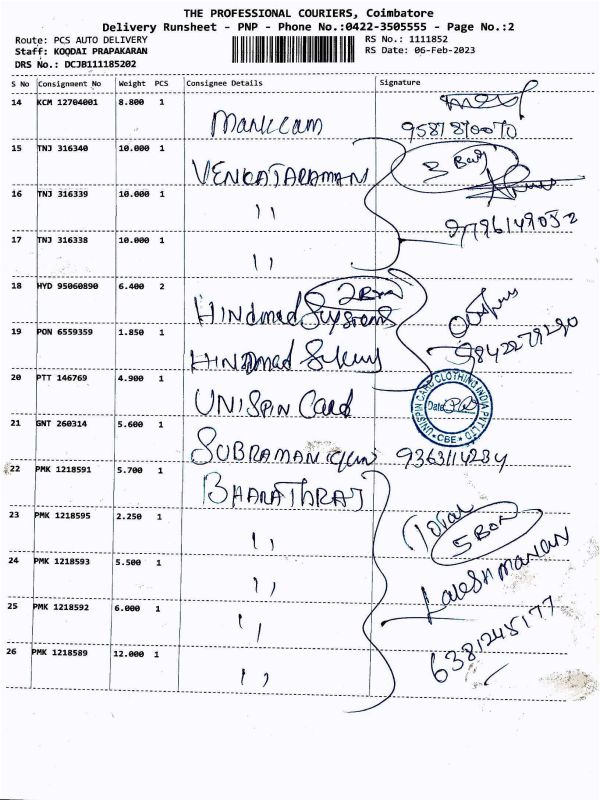 THE PROFESSIONAL COURIERS, Coimbatore
Delivery Runsheet - PNP - Phone No.:0422-3505555 - Page No.:2
Route: PCS AUTO DELIVERY
RS No.: 1111852
Staff: KOODAI PRAPAKARAN
RS Date: 06-Feb-2023
DRS No.: DCJB111185202
S No Consignment No Weight PCS Consignee Details Signature
14 KCM 12704001 8.800 1
Maniccam 9587870070
15 TNJ 316340 10.000 1
VENKATARAMAN
16 TNJ 316339 10.000 1
" 9796149052
17 TNJ 316338 10.000 1
"
18 HYD 95060890 6.400 2
2 Box
HINDmad Systems
19 PON 6559359 1.850 1
HINDmad 9842279290
20 PTT 146769 4.900 1
UNISPIN Card
UNISPIN CARD CLOTHING INDIA PVT LTD
Date
CBE
21 GNT 260314 5.600 1
SUBRAMANIYAN 9363114234
22 PMK 1218591 5.700 1
BHARATHRAJ
23 PMK 1218595 2.250 1
" Total
5 Box
24 PMK 1218593 5.500 1
" LAKSHMANAN
25 PMK 1218592 6.000 1
" 6381245177
26 PMK 1218589 12.000 1
"